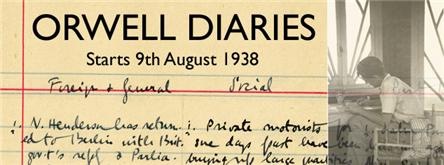 ORWELL DIARIES
Starts 9th August 1938
Foreign & General Social
1. N. Henderson has return 1. Private motorists
ed to Berlin with Brit. one days past have been
gov't's reply & Parlia. buying up large